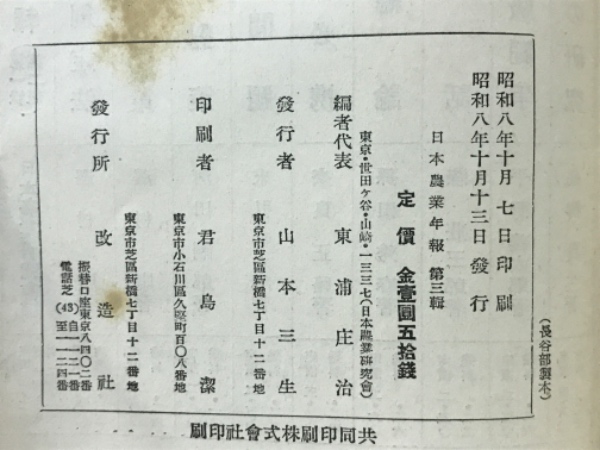 昭和八年十月七日印刷
昭和八年十月十三日發行
日本農業年報 第三輯
定價 金壹圓五拾錢
東京・世田ケ谷・山崎・一三三七(日本農業硏究會)
編者代表 東浦庄治
發行者 山本三生
東京市芝區新橋七丁目十二番地
印刷者 君島潔
東京市小石川區久堅町百〇八番地
發行所 改造社
東京市芝區新橋七丁目十二番地
振替口座東京八四〇二番
電話芝(43)自一一二一番至一一二四番
(長谷部製本)
共同印刷株式會社印刷